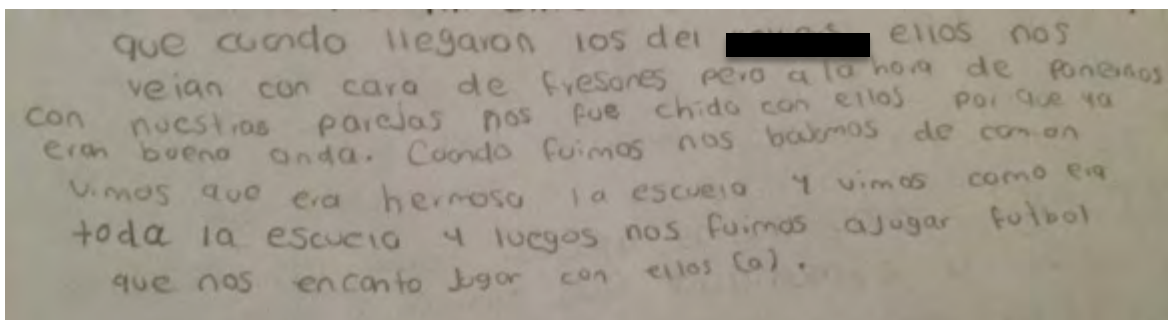 que cuando llegaron los del ellos nos
veian con cara de fresones pero a la hora de ponernos
con nuestras parejas nos fue chido con ellos por que ya
eran bueno onda. Cuando fuimos nos bakmos de camon
vimos que era hermosa la escuela y vimos como era
toda la escuela y luegos nos fuimos a Jugar futbol
que nos encanto Jugar con ellos (a).